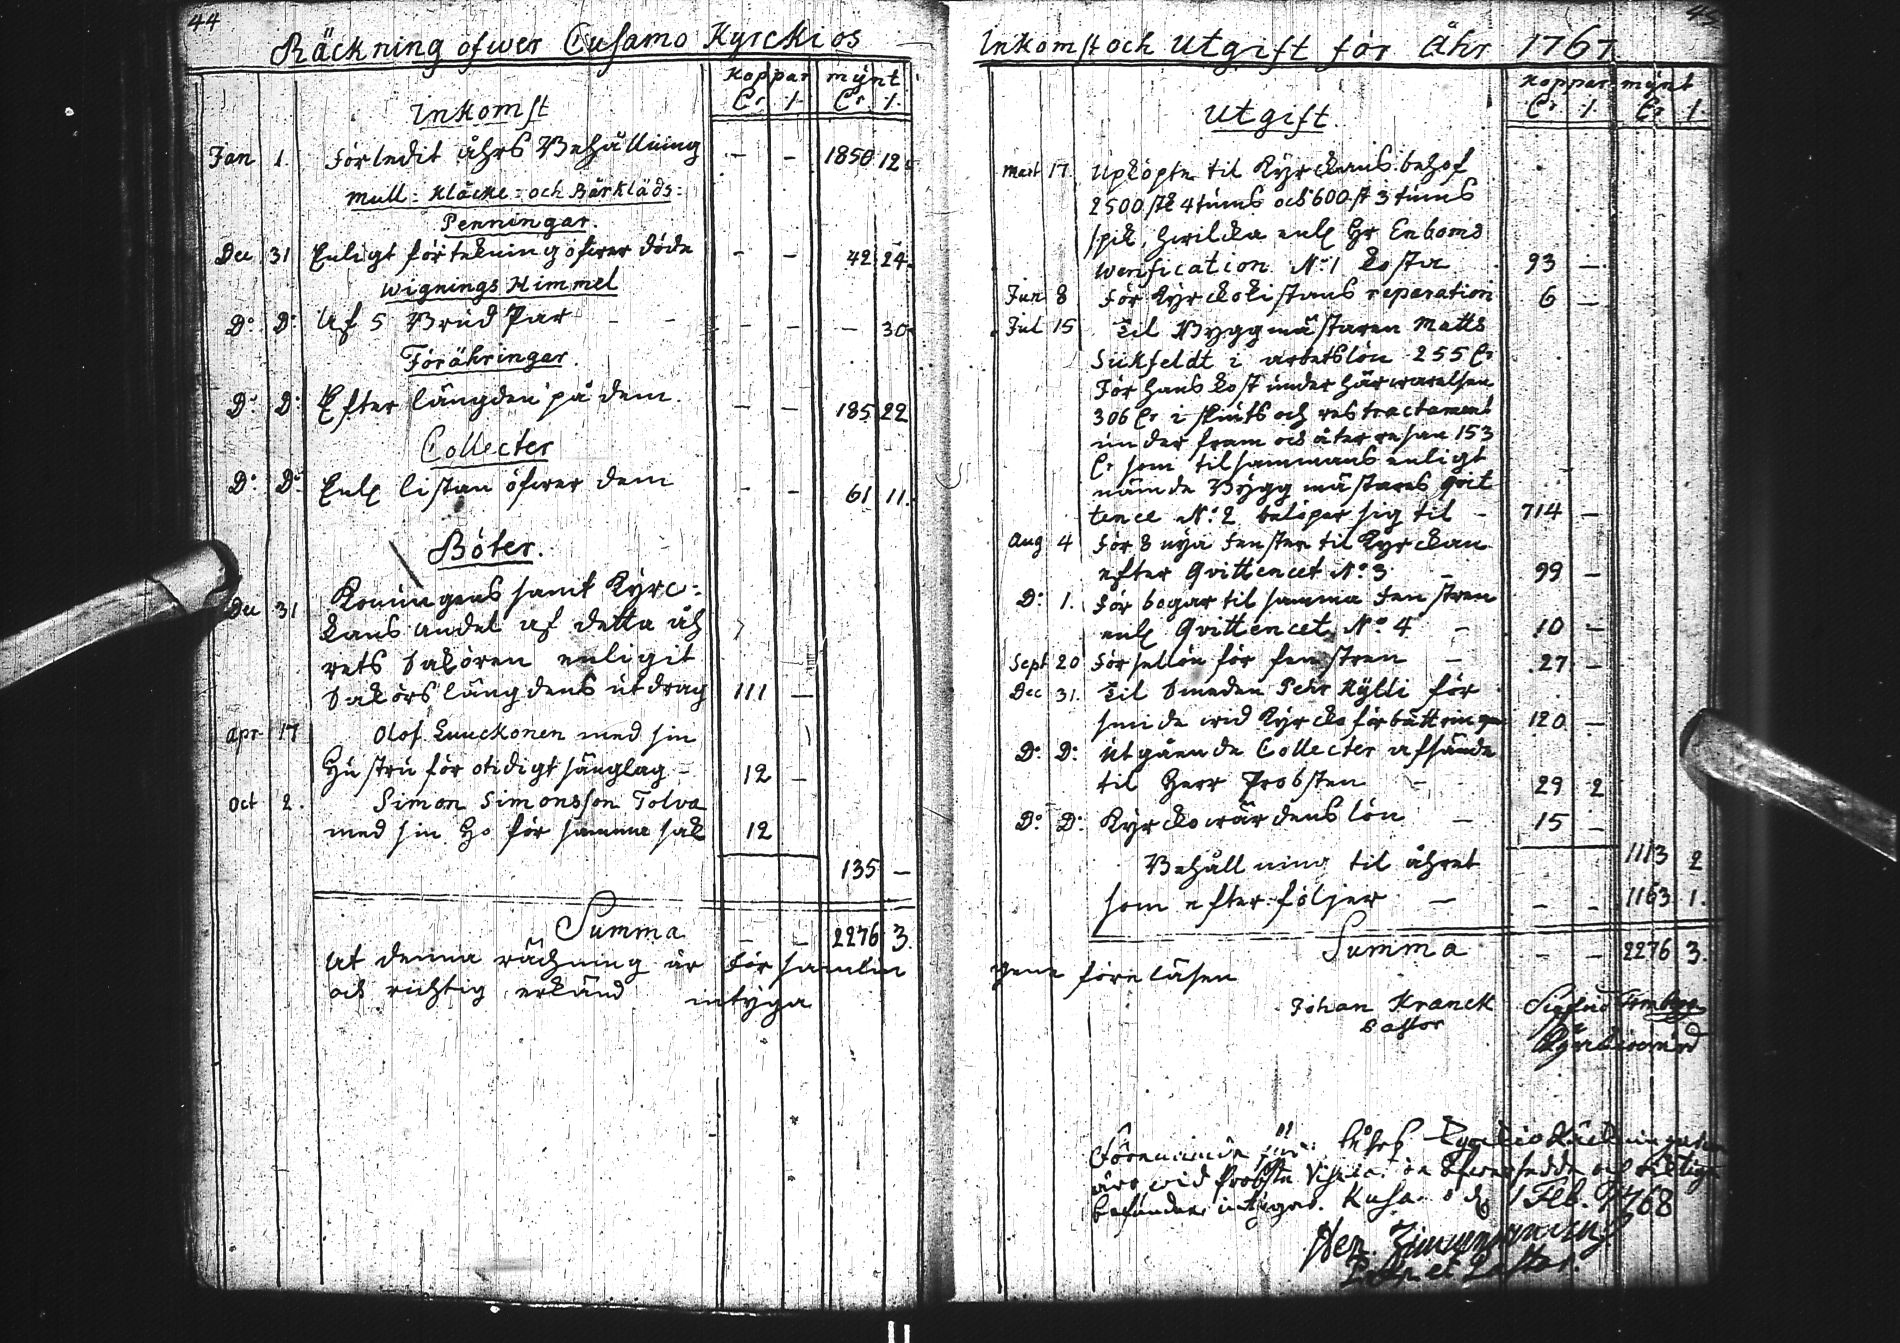 44
Räckning ofwer Cusamo Kyrckios
Koppar mynt
Cr /. Cr /.
Inkomst
Jan 1 Förledit åhrs Behållning - - 1850 12
Mull- Kläcke- och Bårkläds-
Penningar.
Dec 31 Enligt förtekning öfwer döde - - 42 24.
Wignings Himmel
D:o D:o Af 5 Brud Par - - - - - 30.
Förähringar.
D:o D:o Efter längden på dem. - - 185 22
Collecter
D:o D:o Enl listan öfwer dem - - 61 11.
Böter.
Dec 31 Konungens samt Kyrc-
kans andel af detta åh
rets Sakören enligit
Sakörs längdens utdrag 111 -
Apr 17 Olof Luuckonen med sin
Hustru för otidigt sänglag - 12 -
Oct 2. Simon Simonsson Tolva
med sin Ho för samma sak 12
135 -
Summa - - 2276 3.
At denna räckning är för samlin
ock richtig erkänd intyga
45
Inkomst och Utgift för Åhr 1767
Koppar mynt
Cr /. Cr /.
Utgift.
Mart 17 Upköpte til Kyrckans behof
2500 st 4 tums och 600 st 3 tums
spik, hwilcka enl Hr Enboms
werification N:o 1 kosta 93 -
Jun 8 För Kyrckokistans reparation 6 -
Jul 15 Til Byggmästaren Matts
Sukfeldt i arbetslön 255 Cr
För hans kost under härwarelsen
306 Cr i skiuts och res tractament
under fram och återresan 153
Cr som tilsammans enligt
nämde Byggmästares qvit
tence N:o 2 belöper sig til - 714 -
Aug 4 För 8 nya Fenster til Kyrckan
efter Qvittencet N:o 3 - 99 -
D:o 1. För bogar til samma Fenstren
enl Qvittencet N:o 4 - 10 -
Sept 20 Forsellön för fenstren - 27 -
Dec 31. Til Smeden Pehr Kylli för
smide wid Kyrcko förbättringen 120 -
D:o D:o Utgående Collecter afsände
til Herr Probsten - 29 2
D:o D:o Kyrckowärdens lön - 15 -
1113 2
Behållning til åhret
som efterföljer - - - 1163 1.
Summa - - 2276 3.
gene föreläsen
Johan Kranck
Pastor
Kyrckiowärd
Kyrckio Räkningar
äro wid Probste och riktige
befundne intygar. 1 Feb. 1768
Hen.